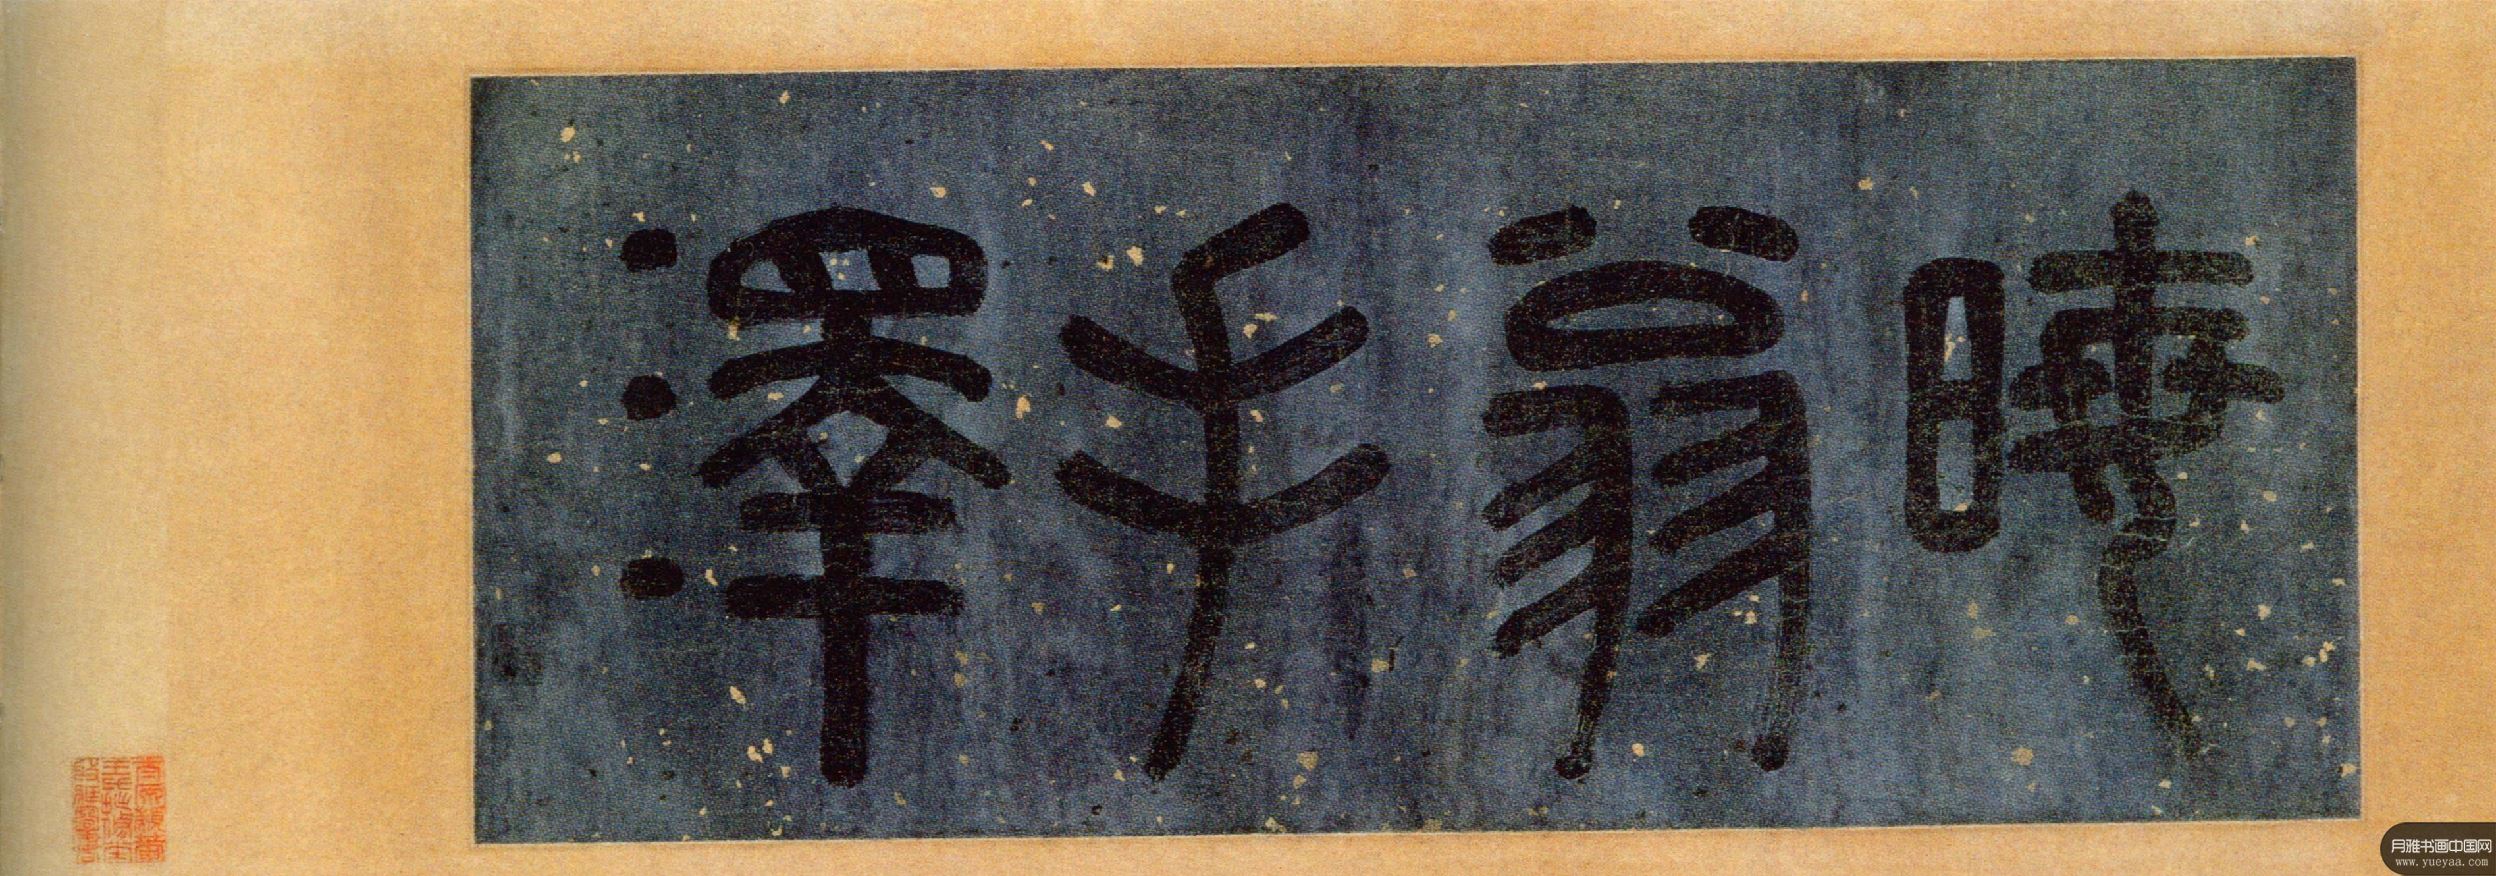 晦翁手澤
月雅书画中国网
www.yueyaa.com